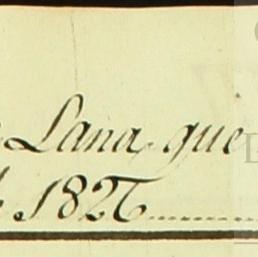 Lana, que
1826